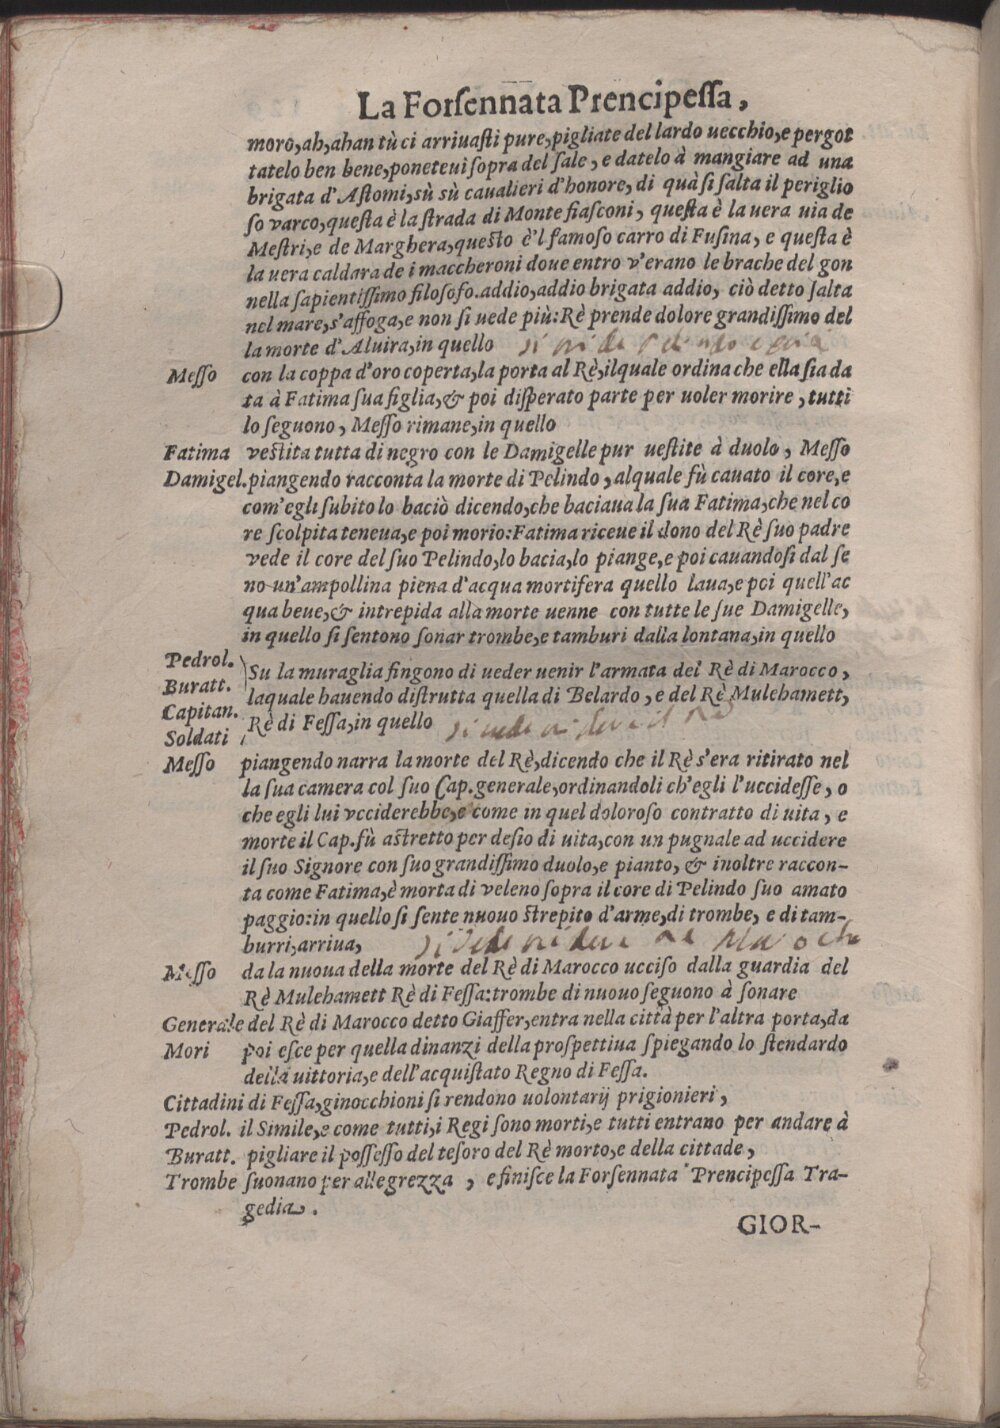 La Forſennata Prencipeſſa,
moro,ah,ahan tù ci arriuaſti pure,pigliate del lardo uecchio,e pergot
tatelo ben bene,poneteui ſopra del ſale, e datelo à mangiare ad una
brigata d'Aſtomi,sù sù caualieri d'honore, di quà ſi ſalta il periglio
ſo varco,queſta è la ſtrada di Monte fiaſconi, queſta è la uera uia de
Meſtri,e de Marghera,queſto è'l famoſo carro di Fuſina, e queſta è
la uera caldara de i maccheroni doue entro v'erano le brache del gon
nella ſapientiſſimo filoſofo.addio,addio brigata addio, ciò detto ſalta
nel mare,s'affoga,e non ſi uede più:Rè prende dolore grandiſſimo del
la morte d'Aluira,in quello
Meſſo con la coppa d'oro coperta,la porta al Rè,ilquale ordina che ella ſia da
ta à Fatima ſua figlia,& poi diſperato parte per uoler morire, tutti
lo ſeguono, Meſſo rimane,in quello
Fatima veſtita tutta di negro con le Damigelle pur ueſtite à duolo, Meſſo
Damigel. piangendo racconta la morte di Pelindo, alquale fù cauato il core,e
com'egli ſubito lo baciò dicendo,che baciaua la ſua Fatima,che nel co
re ſcolpita teneua,e poi morio:Fatima riceue il dono del Rè ſuo padre
vede il core del ſuo Pelindo,lo bacia,lo piange,e poi cauandoſi dal ſe
no un'ampollina piena d'acqua mortifera quello laua,e poi quell'ac
qua beue,& intrepida alla morte uenne con tutte le ſue Damigelle,
in quello ſi ſentono ſonar trombe,e tamburi dalla lontana,in quello
Pedrol.
Buratt.
Capitan.
Soldati
Su la muraglia fingono di ueder uenir l'armata del Rè di Marocco,
laquale hauendo diſtrutta quella di Belardo, e del Rè Mulehamett,
Rè di Feſſa,in quello
Meſſo piangendo narra la morte del Rè,dicendo che il Rè s'era ritirato nel
la ſua camera col ſuo Cap.generale,ordinandoli ch'egli l'uccideſſe, o
che egli lui vcciderebbe,e come in quel doloroſo contratto di uita, e
morte il Cap.fù aſtretto per deſio di uita,con un pugnale ad uccidere
il ſuo Signore con ſuo grandiſſimo duolo,e pianto, & inoltre raccon-
ta come Fatima,è morta di veleno ſopra il core di Pelindo ſuo amato
paggio:in quello ſi ſente nuouo ſtrepito d'arme,di trombe, e di tam-
burri,arriua,
Meſſo da la nuoua della morte del Rè di Marocco ucciſo dalla guardia del
Rè Mulehamett Rè di Feſſa:trombe di nuouo ſeguono à ſonare
Generale del Rè di Marocco detto Giaffer,entra nella città per l'altra porta,da
Mori poi eſce per quella dinanzi della proſpettiua ſpiegando lo ſtendardo
della uittoria,e dell'acquiſtato Regno di Feſſa.
Cittadini di Feſſa,ginocchioni ſi rendono uolontarij prigionieri,
Pedrol. il Simile,e come tutti,i Regi ſono morti,e tutti entrano per andare à
Buratt. pigliare il poſſeſſo del teſoro del Rè morto,e della cittade,
Trombe ſuonano per allegrezza, e finiſce la Forſennata Prencipeſſa Tra-
gedia.
GIOR-